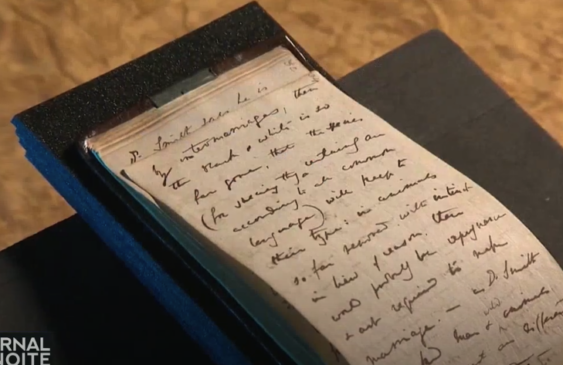 Dr. Smith says he is
by intermarriages, then
the black & white is so
far gone, that the species
(for species they certainly are
according to all common
language) will keep to
their type: in animals
so far removed with instinct
in lieu of reason, there
would probably be repugnance
& art required to make
marriage. — as Dr. Smith
man & animals
an different
RNAL
NOITE